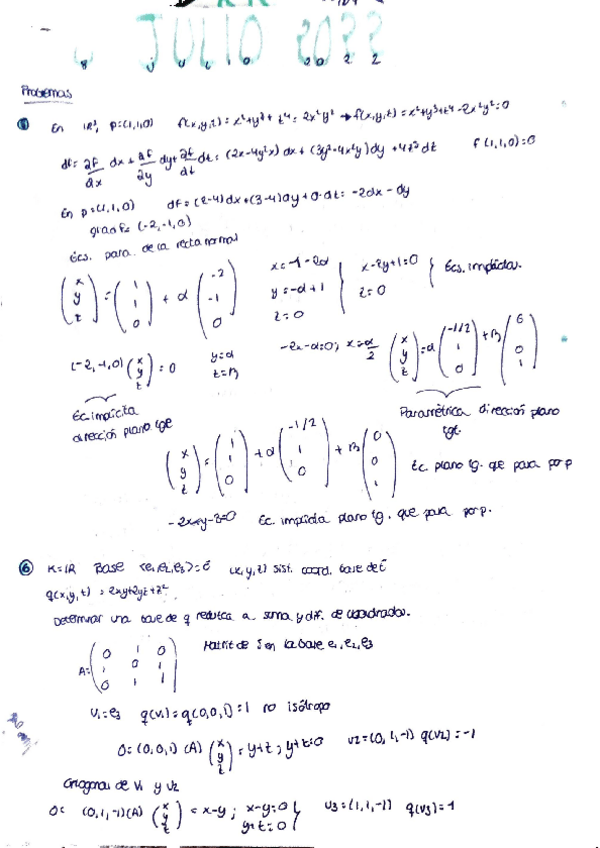 JULIO 2022
8 JULIO 2022
Problemas
5 En ℝ³, p=(1,1,0) f(x,y,z)= x²+y³+z⁴= 2x²y² → f(x,y,z)= x²+y³+z⁴-2x²y²=0
df= ∂f/∂x dx + ∂f/∂y dy + ∂f/∂z dz = (2x-4y²x)dx + (3y²-4x²y)dy + 4z³dz f(1,1,0)=0
En p=(1,1,0) df=(2-4)dx+(3-4)dy+0·dz= -2dx - dy
grad f= (-2,-1,0)
Ecs. para. de la recta normal
(x y z) = (1 1 0) + α (-2 -1 0) x=-1-2α y=-α+1 z=0 } x-2y+1=0 z=0 } Ecs. implícita.
(-2,-1,0) (x y z) = 0 y=α z=β -2x-α=0; x=α/2 (x y z) = α (-1/2 1 0) + β (0 0 1)
Ec. implícita dirección plano tge Paramétrica dirección plano tgt.
(x y z) = (1 1 0) + α (-1/2 1 0) + β (0 0 1) Ec. plano tg. que pasa por p
-2x-y-3=0 Ec. implícita plano tg. que pasa por p.
6 K=ℝ Base (e₁,e₂,e₃)=E (x,y,z) sist. coord. base de E
q(x,y,z) = 2xy+2yz+z²
Determinar una base de q reducida a suma y dif. de cuadrados.
A= (0 1 0 / 1 0 1 / 0 1 1) Matriz de S en la base e₁,e₂,e₃
v₁=e₃ q(v₁)=q(0,0,1)=1 no isótropo
0=(0,0,1) (A) (x y z) = y+z; y+z=0 v₂=(0,1,-1) q(v₂)=-1
Ortogonal de v₁ y v₂
0= (0,1,-1)(A) (x y z) = x-y; x-y=0 y+z=0 } v₃=(1,1,-1) q(v₃)=1